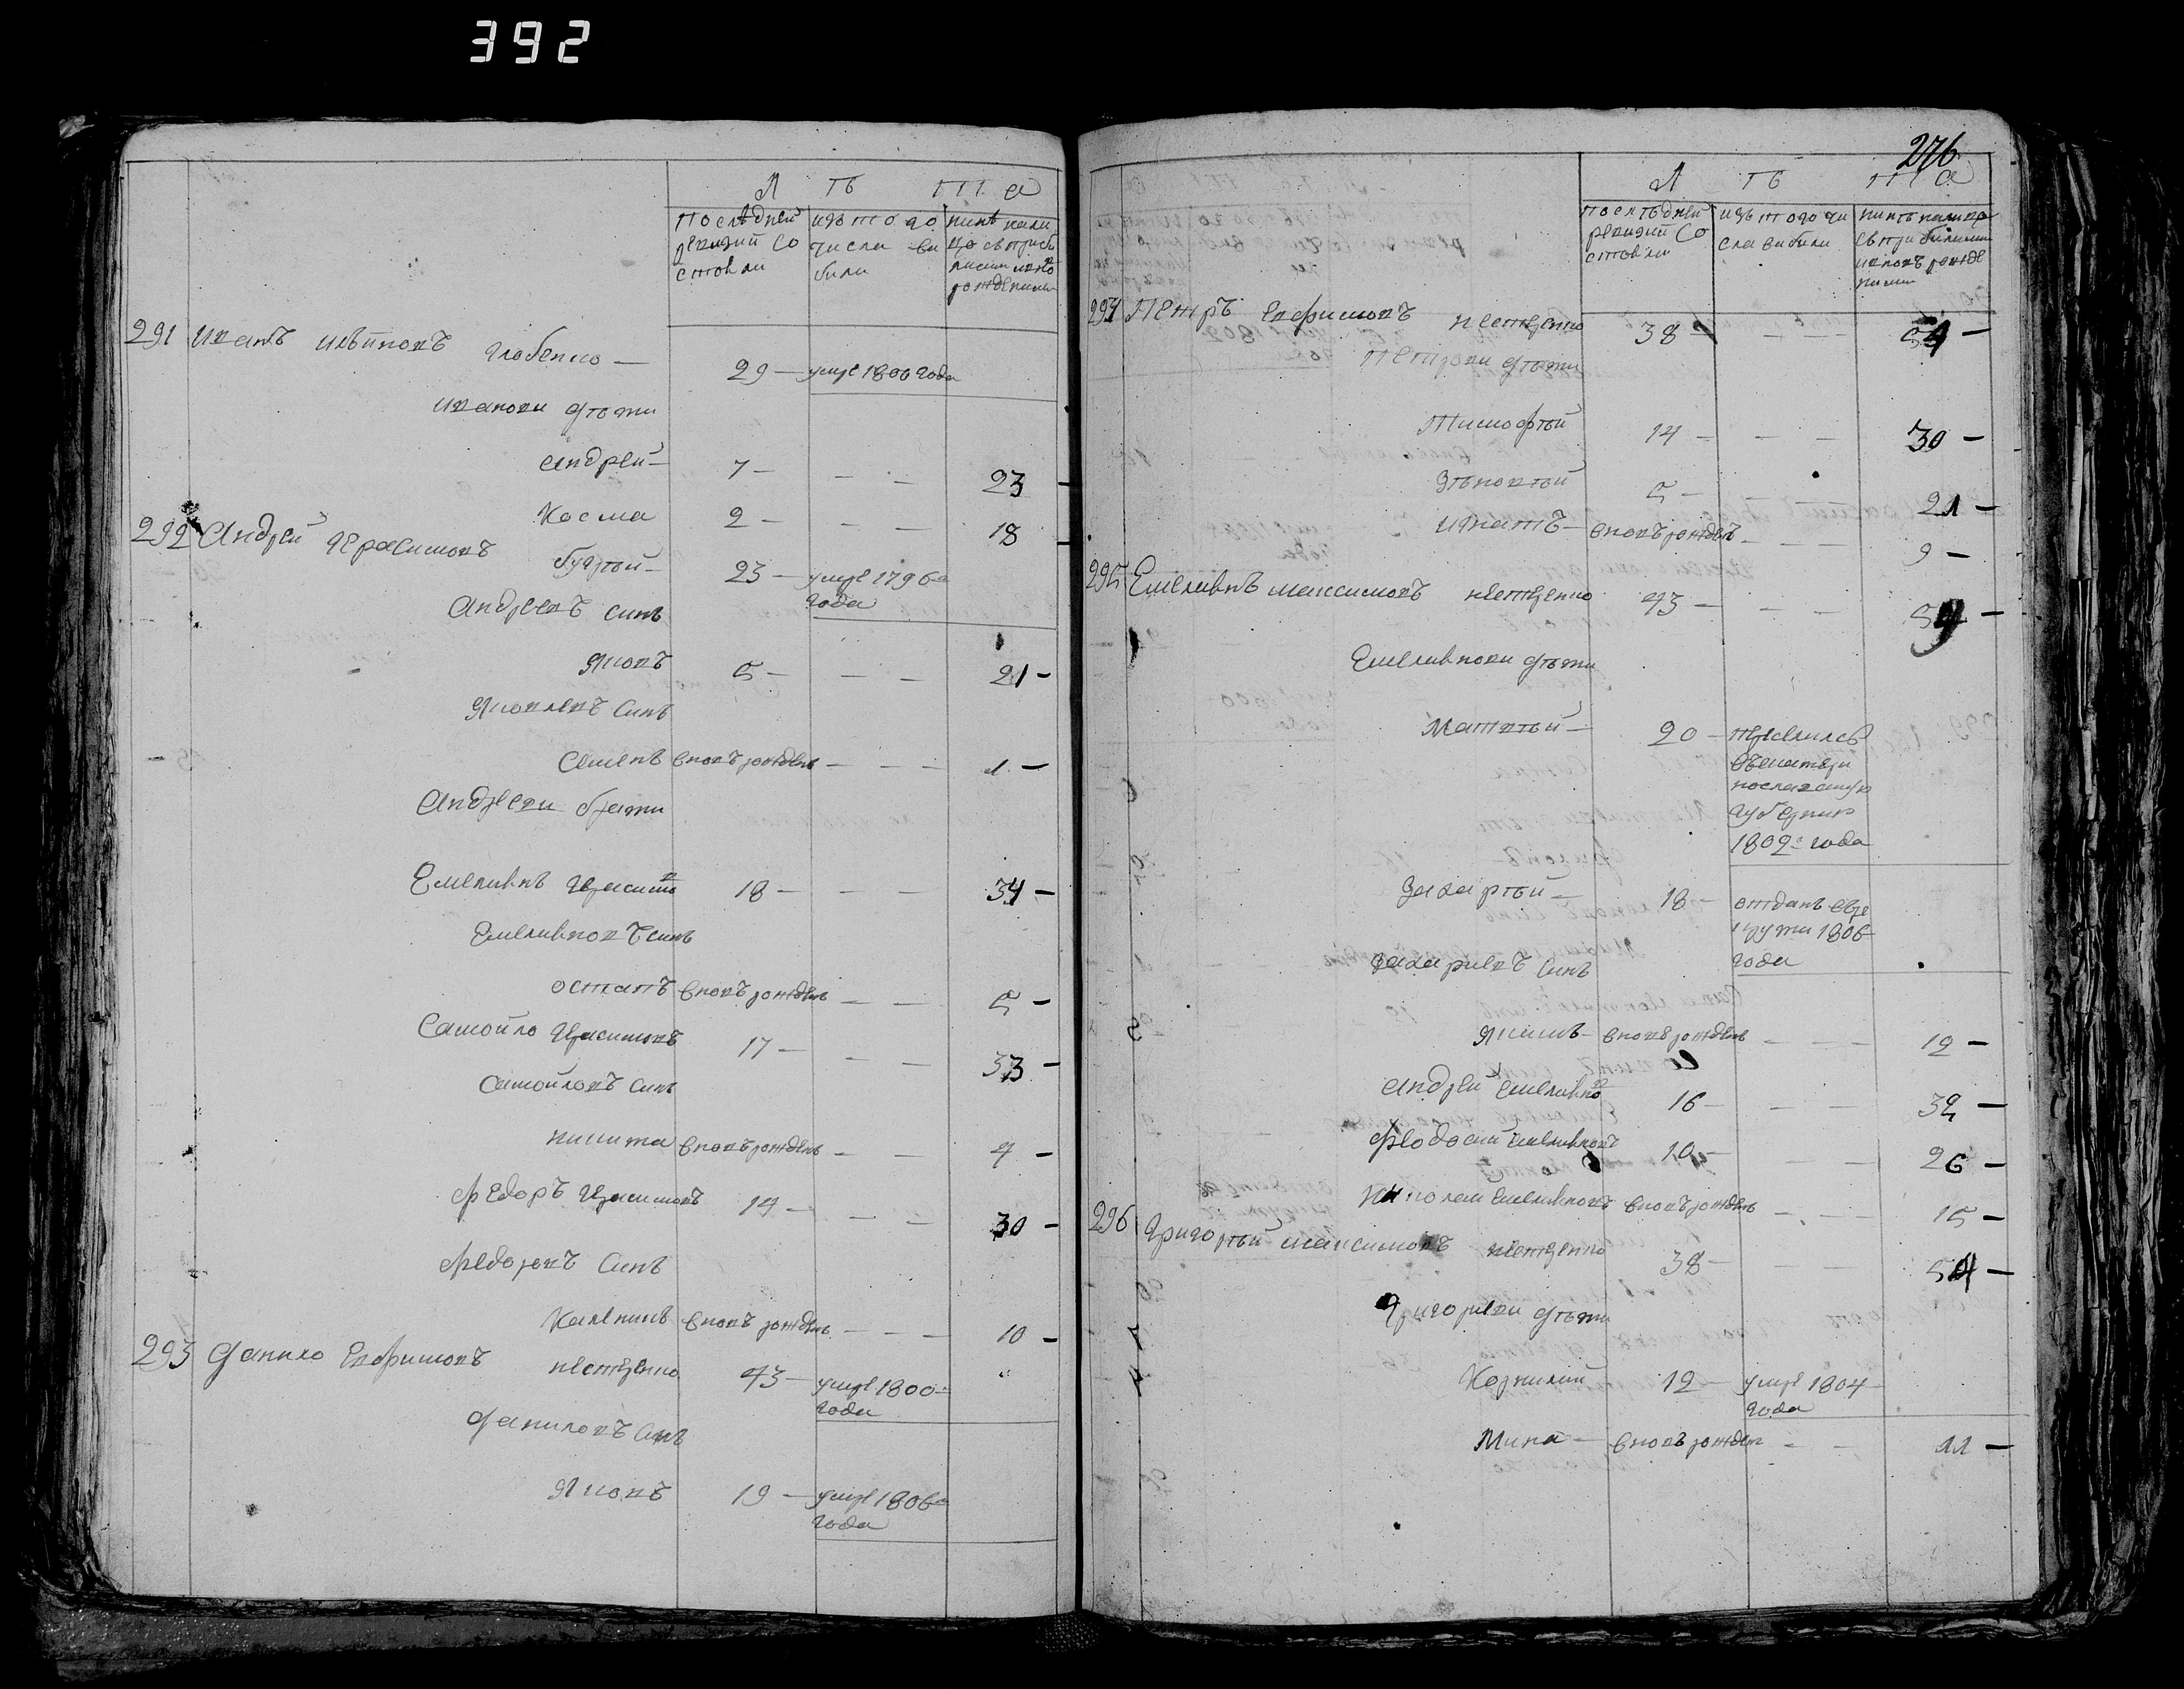 392
Л ѣ та
Последней ревизий состояли
изъ того числа выбили
нинѣ налицо съ прибылими и новорожденими
291 Иванъ Ивановъ Глобенко — 29 — умре 1800 года
Ивановы дѣти
Андрей — 7 — — — 23 —
Косма 2 — — — 18
292 Андрей Герасимовъ Бугрѣй — 23 — умре 1796 года
Андреевъ синъ
Яковъ 5 — — — 21 —
Яковлевъ Синъ
Семенъ вновъ рожденъ — — — 1 —
Андреевы брати
Емелианъ Герасимовъ 18 — — — 34 —
Емелиановъ синъ
Остапъ вновъ рожденъ — — 5 —
Самойло Герасимовъ 17 — — — 33 —
Самойловъ Синъ
Никита вновъ рожденъ — — 4 —
Федоръ Герасимовъ 14 — — — 30 —
Федоровъ Синъ
Каленикъ вновъ рожденъ — — — 10 —
293 Данило Евфимовъ Нестеренко 43 — умре 1800 года
Даниловъ Синъ
Яковъ 19 — умре 1806 года
276
Л ѣ та
Последней ревизий состояли
изъ того числа выбили
нинѣ налицо съ прибылими и новъ рожденими
294 Петръ Евфимовъ Нестеренко 38 — — — 54 —
Петровы дѣти
Тимофѣй 14 — — — 30 —
5 — — — 21 —
Игнатъ — вновъ рожденъ — — — 9 —
295 Емелианъ Максимовъ Нестеренко 43 — — — 59 —
Емелианови дѣти
Матвѣй — 20 — переселился въ Екатеринославскую губернию 1802 года
Захарѣй — 18 — отданъ в рекрути 1806 года
Захариевъ Синъ
Якимъ — вновъ рожденъ — — — 12 —
Андрей Емелиановъ 16 — — — 32 —
Феодосий Емелиановъ 10 — — — 26 —
Николай Емелиановъ вновъ рожденъ — — — 15 —
296 Григорѣй Максимовъ Нестеренко 38 — — — 54 —
Григориеви дѣти
Корнилий 12 — умре 1804 года
Мина — вновъ рожденъ — — 11 —